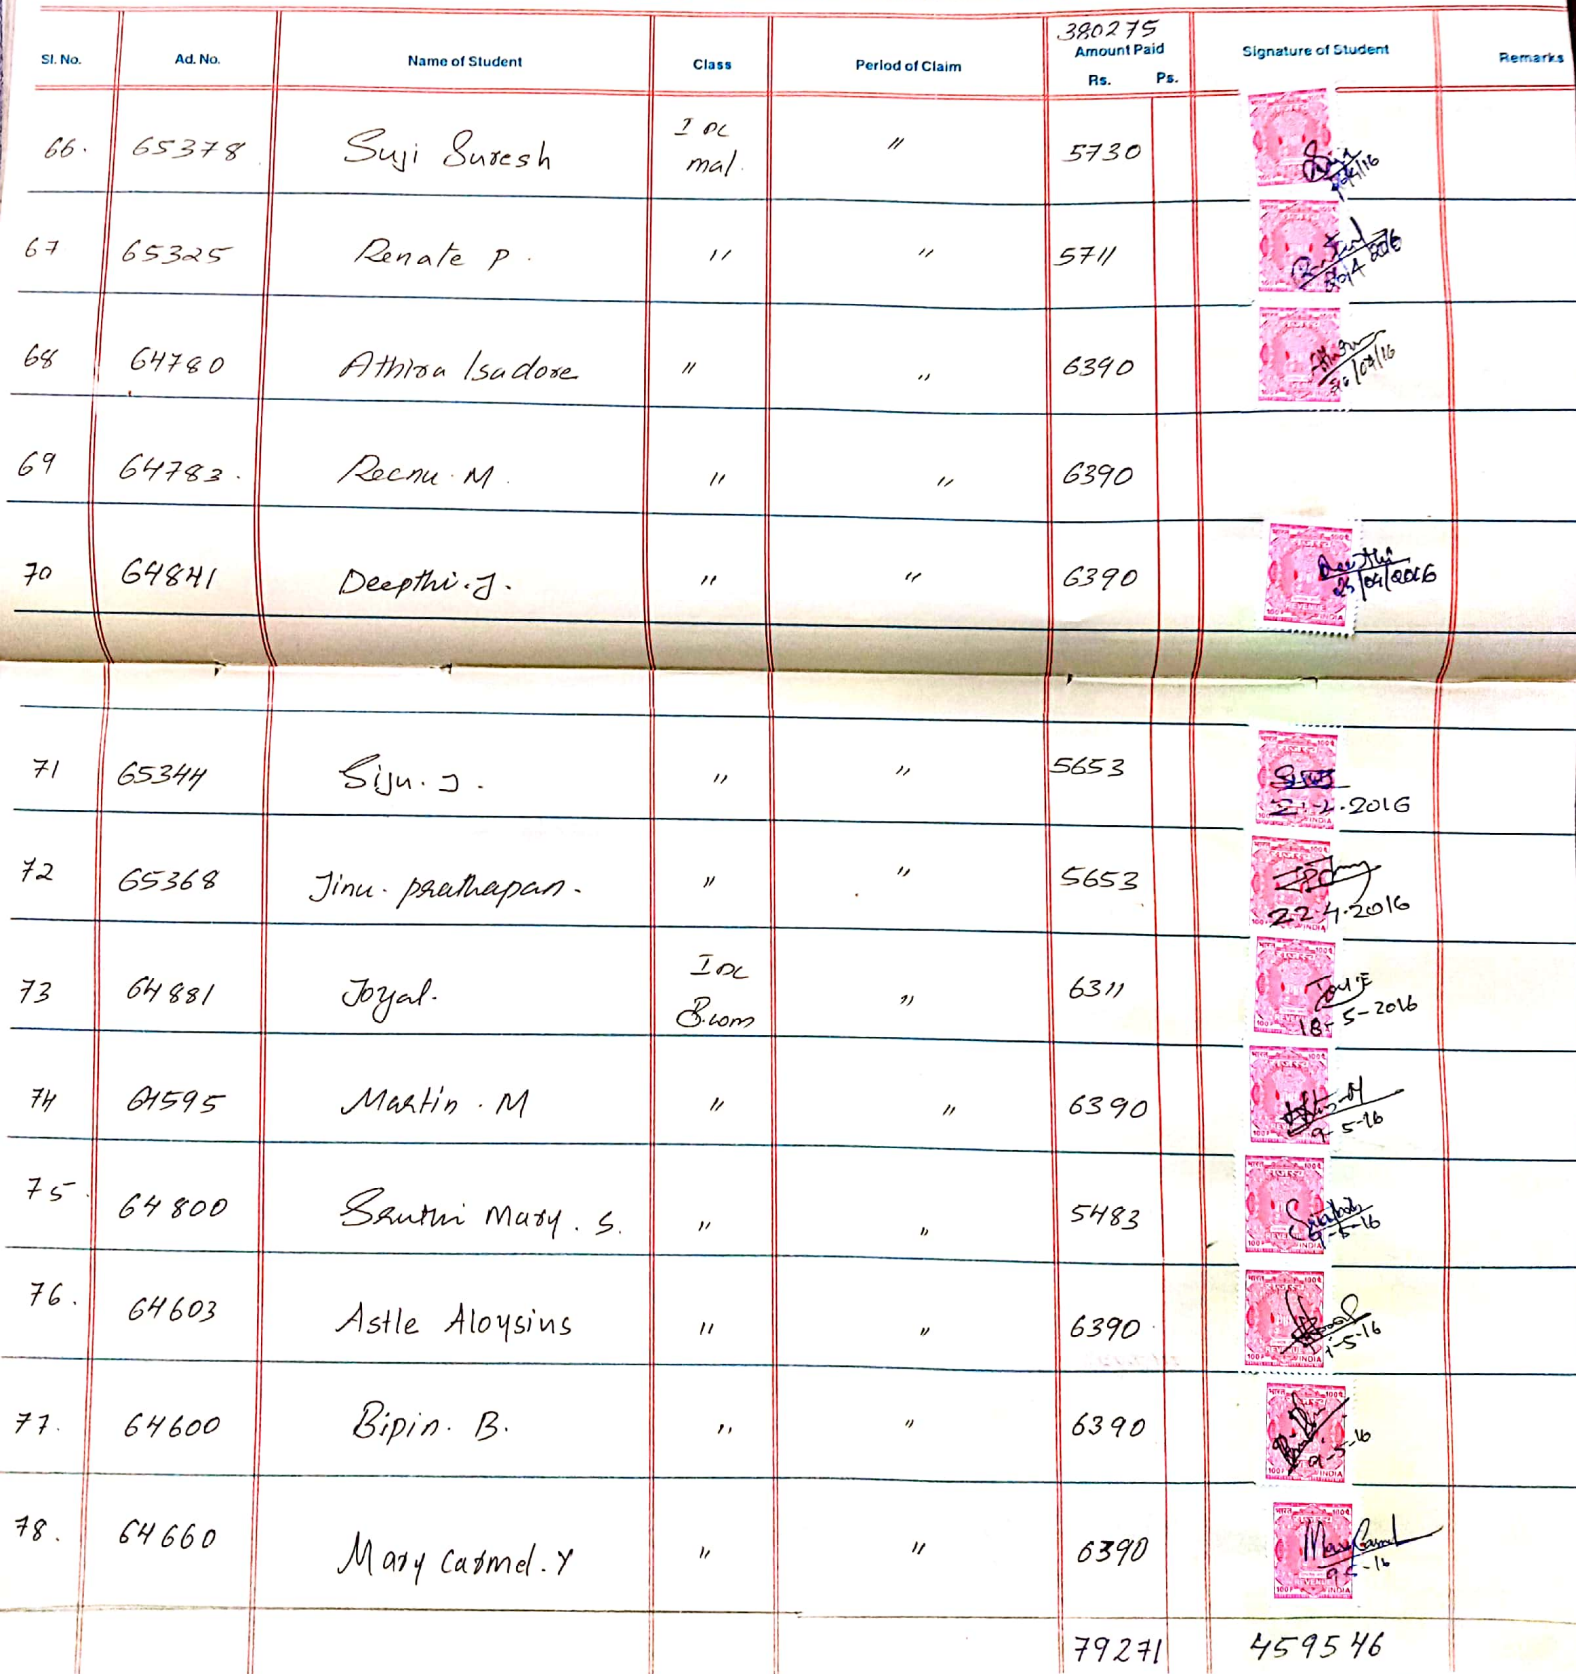 380275
Sl. No. Ad. No. Name of Student Class Period of Claim Amount Paid Rs. Ps. Signature of Student Remarks
66. 65378 Suji Suresh I DC mal. " 5730
67 65325 Renate P. " " 5711
68 64780 Athira Isadore " " 6390
69 64783. Reenu. M. " " 6390
70 64841 Deepthi. J. " " 6390 25/04/2016
71 65344 Siju. J. " " 5653 .2016
72 65368 Jinu. prathapan. " " 5653 22.4.2016
73 64881 Joyal. I DC B.com " 6311 18-5-2016
74 64595 Martin. M " " 6390 9-5-16
75. 64800 Mary. S. " " 5483 9-5-16
76. 64603 Astle Aloysius " " 6390 -5-16
77. 64600 Bipin. B. " " 6390 9-5-16
78. 64660 Mary Carmel. Y " " 6390 9-5-16
79271 459546